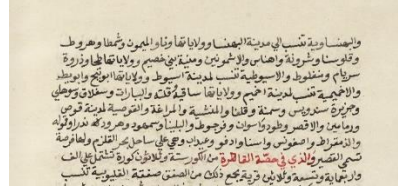 والبهنساوية تنسب الي مدينة البهنسا وولاياتها وفاو الميمون وشمطا وهروط
وقلوسنا وشرونة واهناس والاشمونين ومنية بني خصيم وولاياتها طحا وذروة
سريام ومنفلوط والاسيوطية تنسب لمدينة اسيوط وولاياتها ابوتيج وابويط
والاخميمية تنسب لمدينة اخميم وولاياتها ساقية قلته والبيارات وسفلاق وهلي
وجزيرة سندويس وسمنة وقلفا والمنشية والمراغة والقوصية لمدينة قوص
ودمامين والاقصر وطود واسوان وفرجوط والبلينا وسمهود وهو ودندرا وقوله
والزمقراط واصفوني واسنا وادفو وعيداب وهي علي ساحل بحر القلزم ولها فرضة
تسمي القصير والذي في حصة القاهرة من الكور ستة وثلاثون كورة تشتمل علي الف
واربعماية وتسعة وثلاثين قرية يجمع ذلك من الصفق صفقة القليوبية تنسب